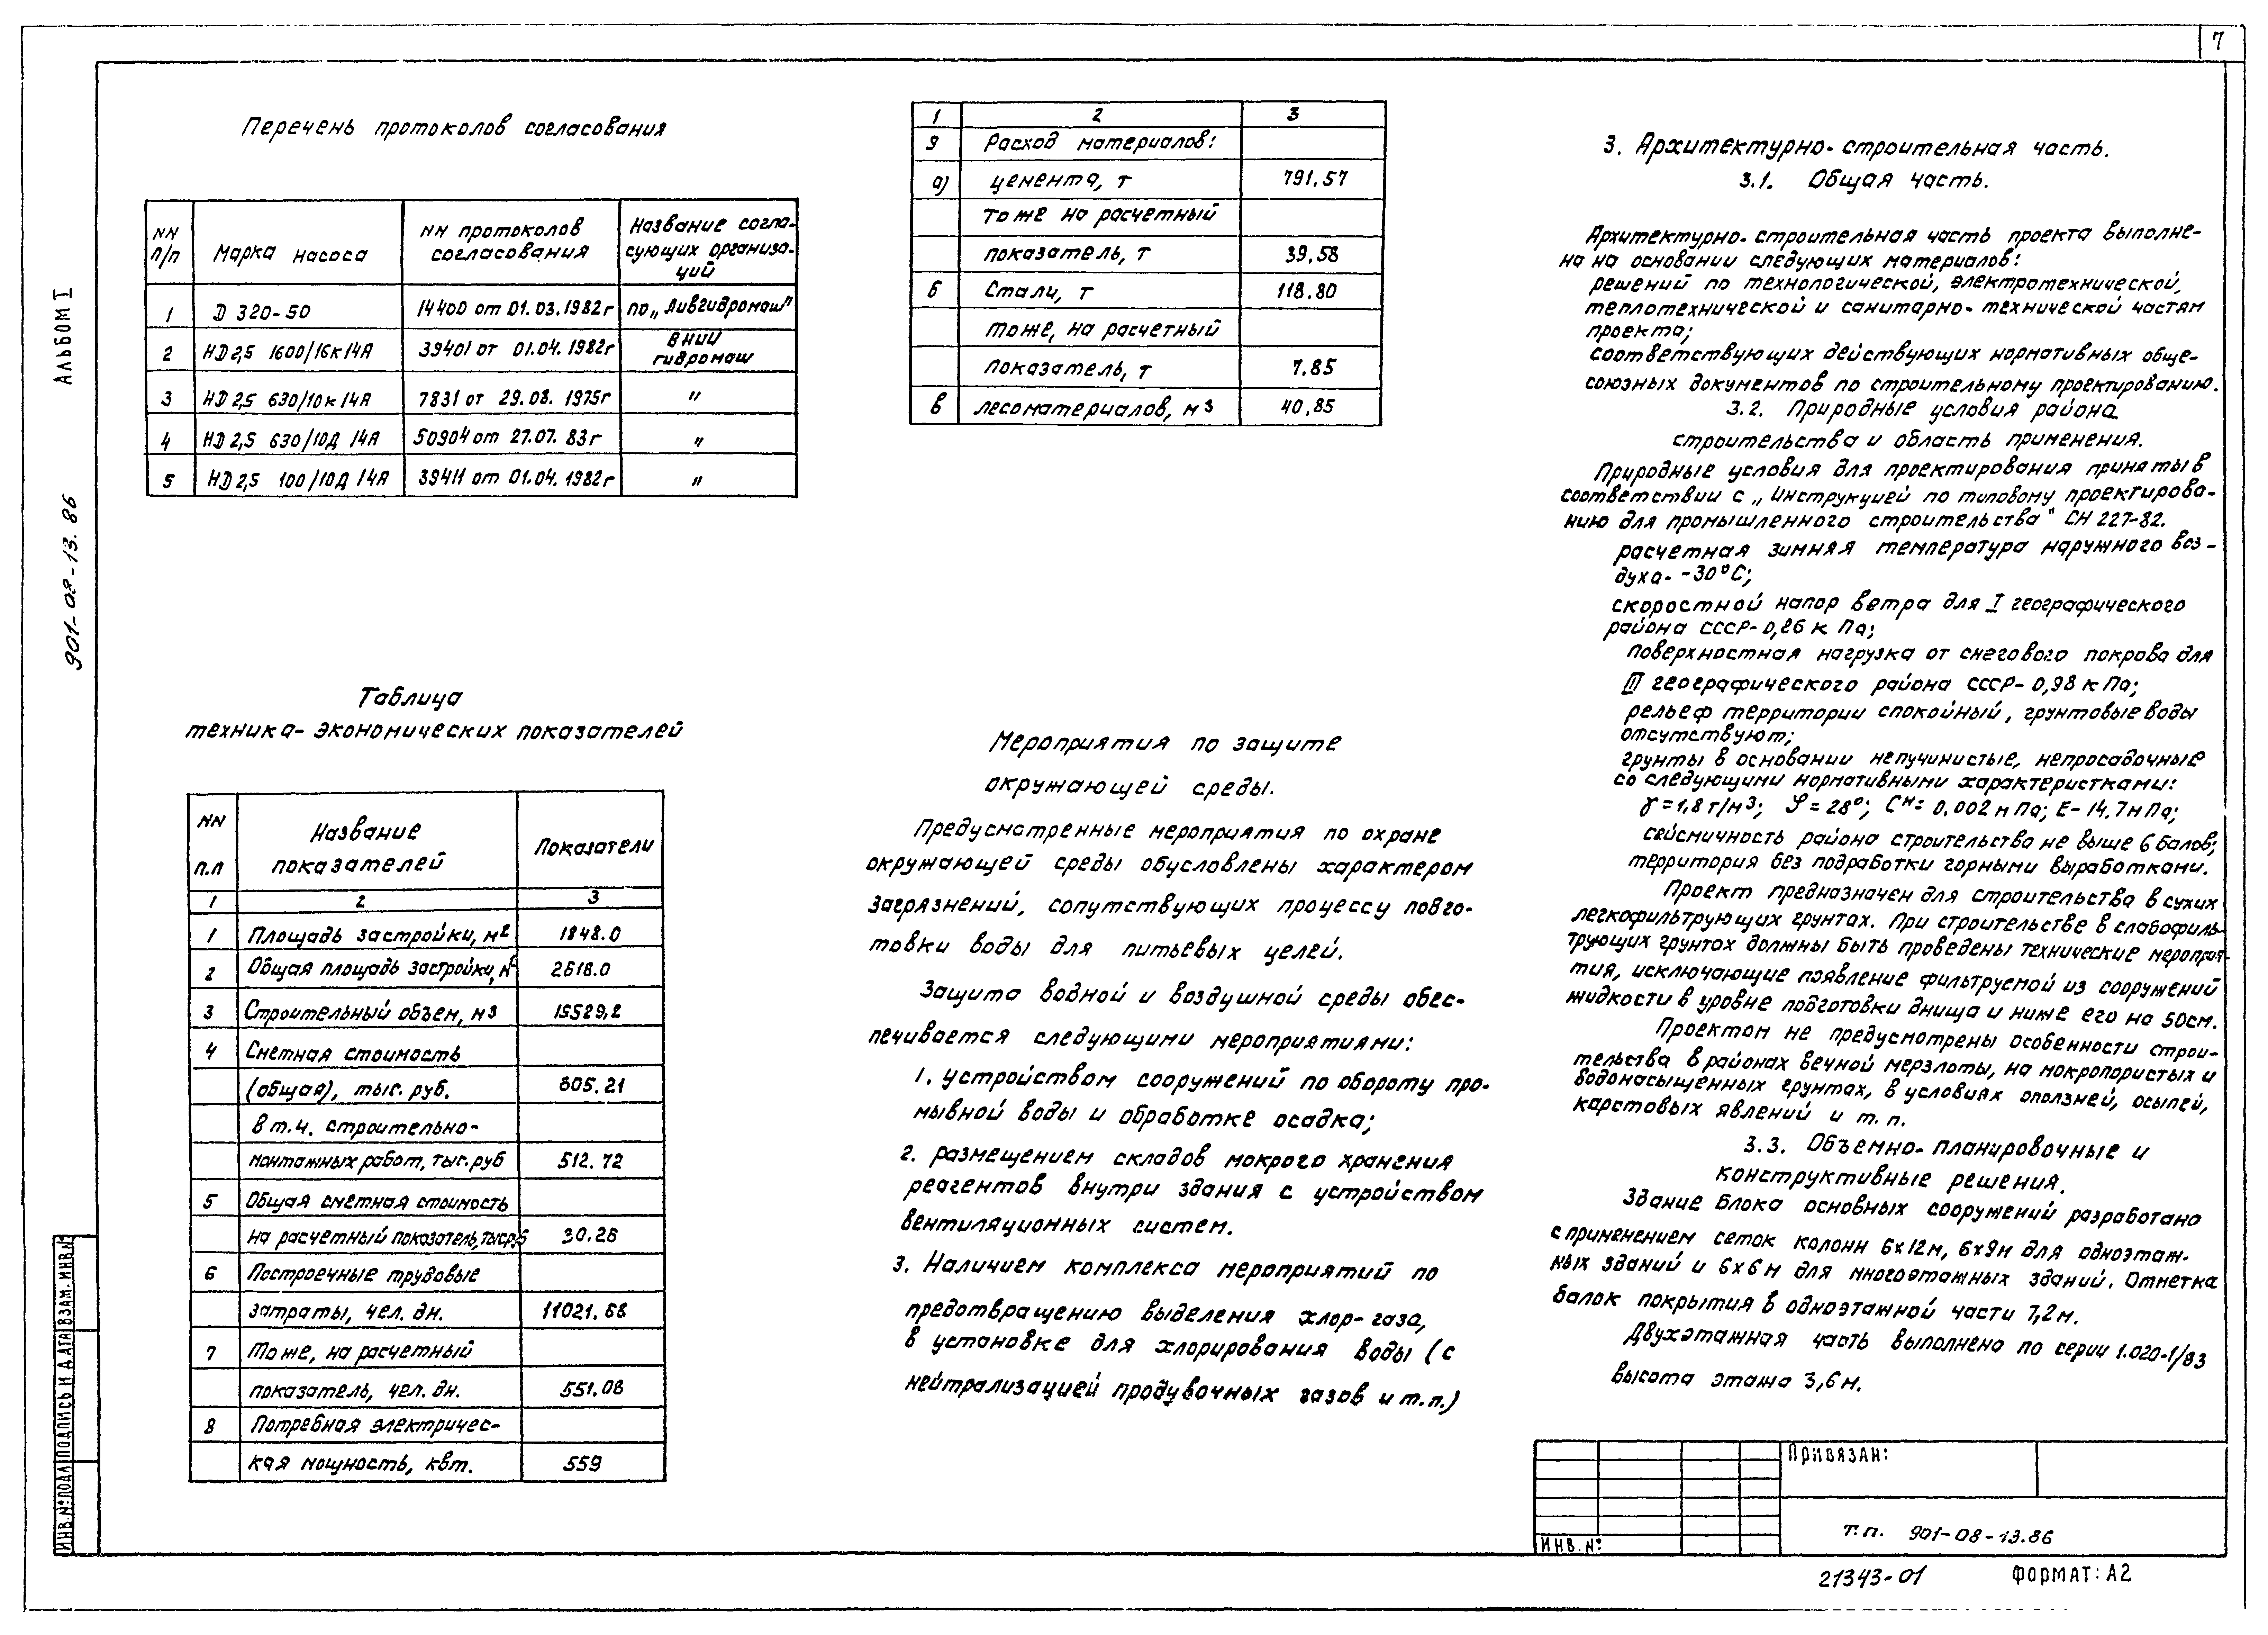 7
АЛЬБОМ I
901-08-13.86
Перечень протоколов согласования
NN п/п | Марка насоса | NN протоколов согласования | Название согла-
сующих организа-
ций
1 | Д 320-50 | 14400 от 01.03.1982г | ПО „Ливгидромаш"
2 | НД 2,5 1600/16К14А | 39401 от 01.04.1982г | ВНИИ
гидромаш
3 | НД 2,5 630/10К14А | 7831 от 29.08.1975г | "
4 | НД 2,5 630/10Д 14А | 50904 от 27.07.83г | "
5 | НД 2,5 100/10Д 14А | 39411 от 01.04.1982г | "
Таблица
технико-экономических показателей
NN п.п | Название показателей | Показатели
1 | 2 | 3
1 | Площадь застройки, м2 | 1848.0
2 | Общая площадь застройки, м2 | 2618.0
3 | Строительный объем, м3 | 15529,2
4 | Сметная стоимость
(общая), тыс. руб. | 605.21
в т.ч. строительно-
монтажных работ, тыс.руб | 512.72
5 | Общая сметная стоимость
на расчетный показатель, тыс.руб | 30.26
6 | Построечные трудовые
затраты, чел. дн. | 11021.68
7 | То же, на расчетный
показатель, чел. дн. | 551.08
8 | Потребная электричес-
кая мощность, квт. | 559
1 | 2 | 3
9 | Расход материалов:
а) | цемента, т | 791.57
то же на расчетный
показатель, т | 39.58
б | Стали, т | 118.80
тоже, на расчетный
показатель, т | 7.85
в | лесоматериалов, м3 | 40,85
Мероприятия по защите
окружающей среды.
Предусмотренные мероприятия по охране
окружающей среды обусловлены характером
загрязнений, сопутствующих процессу подго-
товки воды для питьевых целей.
Защита водной и воздушной среды обес-
печивается следующими мероприятиями:
1. устройством сооружений по обороту про-
мывной воды и обработке осадка;
2. размещением складов мокрого хранения
реагентов внутри здания с устройством
вентиляционных систем.
3. Наличием комплекса мероприятий по
предотвращению выделения хлор-газа,
в установке для хлорирования воды (с
нейтрализацией продувочных газов и т.п.)
3. Архитектурно-строительная часть.
3.1. Общая часть.
Архитектурно-строительная часть проекта выполне-
на на основании следующих материалов:
решений по технологической, электротехнической,
теплотехнической и санитарно-технической частям
проекта;
соответствующих действующих нормативных обще-
союзных документов по строительному проектированию.
3.2. Природные условия района
строительства и область применения.
Природные условия для проектирования приняты в
соответствии с „Инструкцией по типовому проектирова-
нию для промышленного строительства" СН 227-82.
расчетная зимняя температура наружного воз-
духа- -30°С;
скоростной напор ветра для I географического
района СССР-0,26 кПа;
поверхностная нагрузка от снегового покрова для
III географического района СССР-0,98 кПа;
рельеф территории спокойный, грунтовые воды
отсутствуют;
грунты в основании непучинистые, непросадочные
со следующими нормативными характеристками:
γ=1,8 т/м3; φ=28°; Сн= 0,002 мПа; Е- 14,7мПа;
сейсмичность района строительства не выше 6 балов;
территория без подработки горными выработками.
Проект предназначен для строительства в сухих
легкофильтрующих грунтах. При строительстве в слабофиль-
трующих грунтах должны быть проведены технические мероприя-
тия, исключающие появление фильтруемой из сооружений
жидкости в уровне подготовки днища и ниже его на 50см.
Проектом не предусмотрены особенности строи-
тельства в районах вечной мерзлоты, на макропористых и
водонасыщенных грунтах, в условиях оползней, осыпей,
карстовых явлений и т. п.
3.3. Объемно-планировочные и
конструктивные решения.
Здание блока основных сооружений разработано
с применением сеток колонн 6х12м, 6х9м для одноэтаж-
ных зданий и 6х6м для многоэтажных зданий. Отметка
балок покрытия в одноэтажной части 7,2м.
Двухэтажная часть выполнена по серии 1.020-1/83
высота этажа 3,6м.
Привязан:
ИНВ. №
Т.П. 901-08-13.86
21343-01
ФОРМАТ: А2
ИНВ.№ПОДЛ
ПОДПИСЬ И ДАТА
ВЗАМ.ИНВ.№